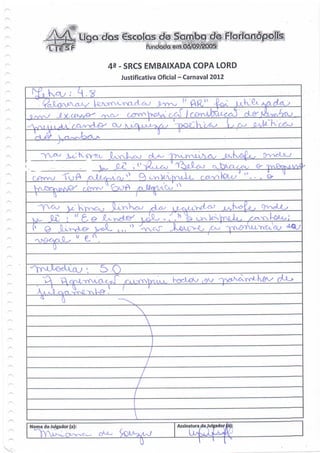 Liga das Escolas de Samba de Florianópolis
LIESF
fundada em 05/09/2005
4ª - SRCS EMBAIXADA COPA LORD
Justificativa Oficial – Carnaval 2012
Letra: 4.8
Palavras terminadas em "AR" foi utilizada
em excesso na composição/construção do samba,
prejudicando a riqueza poética e a estética
do samba.
Na sétima linha da primeira estrofe onde
se lê: "Rica Bela abraça o progresso
com TUA alegria" O intérprete cantou "... o
progresso com "SUA alegria"
Na sétima linha da segunda estrofe, onde
se lê: "E o lindo sol ..." o intérprete cantou:
"O lindo sol ..." não houve a pronúncia da
vogal "E".
Melodia: 5.0
A Agremiação cumpriu todos os parâmetros de
julgamento.
Nome do Julgador (a):
Assinatura do Julgador (a):
Mariana de Souza